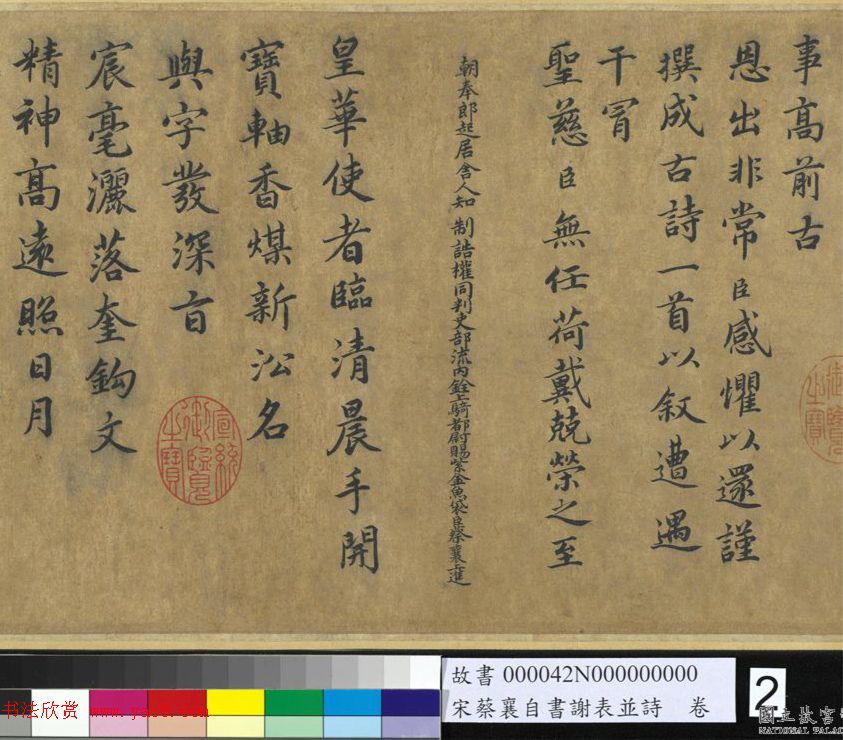 事高前古
恩出非常臣感懼以還謹
撰成古詩一首以叙遭遇
干冒
聖慈臣無任荷戴兢榮之至
朝奉郎起居舍人知制誥權同判吏部流內銓上騎都尉賜紫金魚袋臣蔡襄上進
皇華使者臨清晨手開
寶軸香煤新沁名
與字發深旨
宸毫灑落奎鈎文
精神高遠照日月
宣統御覽之寶
御覽之寶
故書 000042N000000000
宋蔡襄自書謝表並詩 卷
2
書法欣赏
國立故宮
NATIONAL PALAC